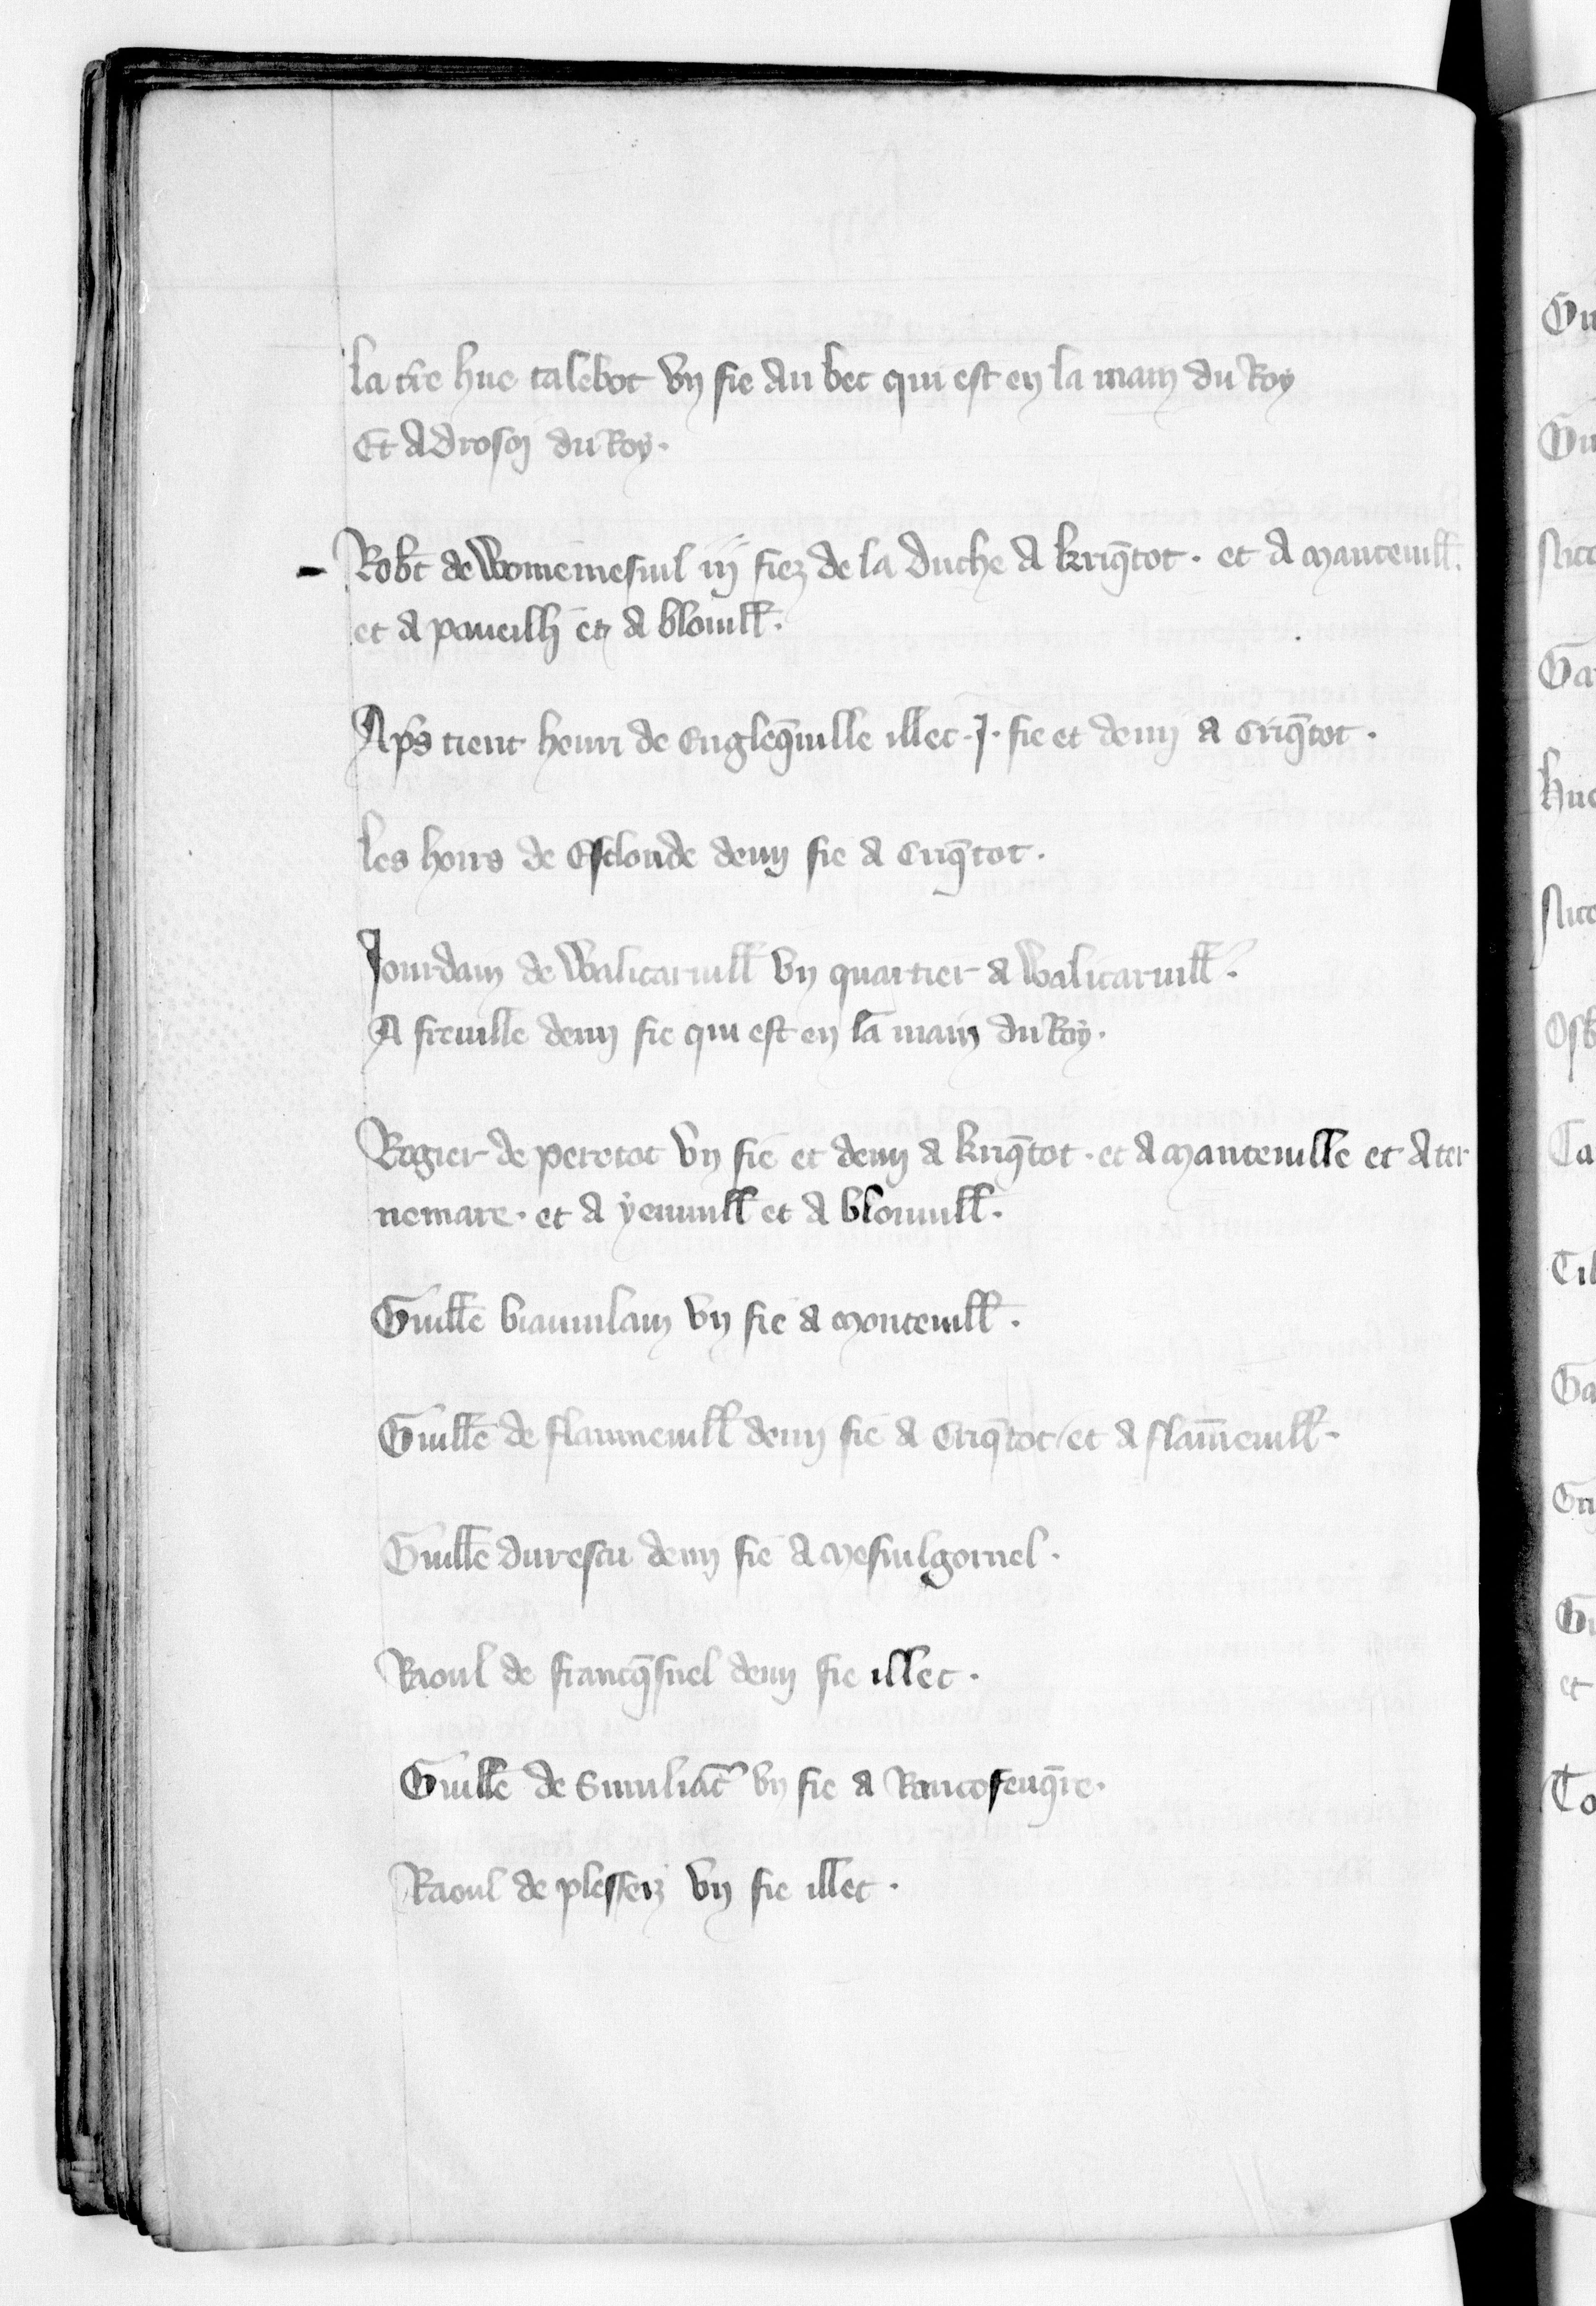 la tr̃e hue talebot vn fie au bec qui est en la main du Roy
Et a droson du Roy.
Rob̃t de Womemesnil iij fiez de la duche a kriq̃tot. et a manteuill̃.
et a paueilh et a blouill̃.
Ap̃s tient henri de Engleq̃uille illec .j. fie et demj a Criq̃tot.
les hoirs de Esclonde demj fie a Criq̃tot.
Jourdain de Walicaruill̃ vn quartier a Walicaruill̃.
A freuille demj fie qui est en la main du Roy.
Rogier de peretot vn fie et demj a kriq̃tot. et a manteuille et a ter
nemare. et a yemuill̃ et a blouuill̃.
Guill̃e biauuilain vn fie a monteuill̃.
Guill̃e de flanmeuill̃ demj fie a Criq̃tot / et a flam̃euill̃.
Guill̃e durescu demj fie a mesnilgornel.
Raoul de francq̃snel demj fie illec.
Guill̃e de Simliac̃ vn fie a Rancofeuq̃re.
Raoul de plesseiz vn fie illec.